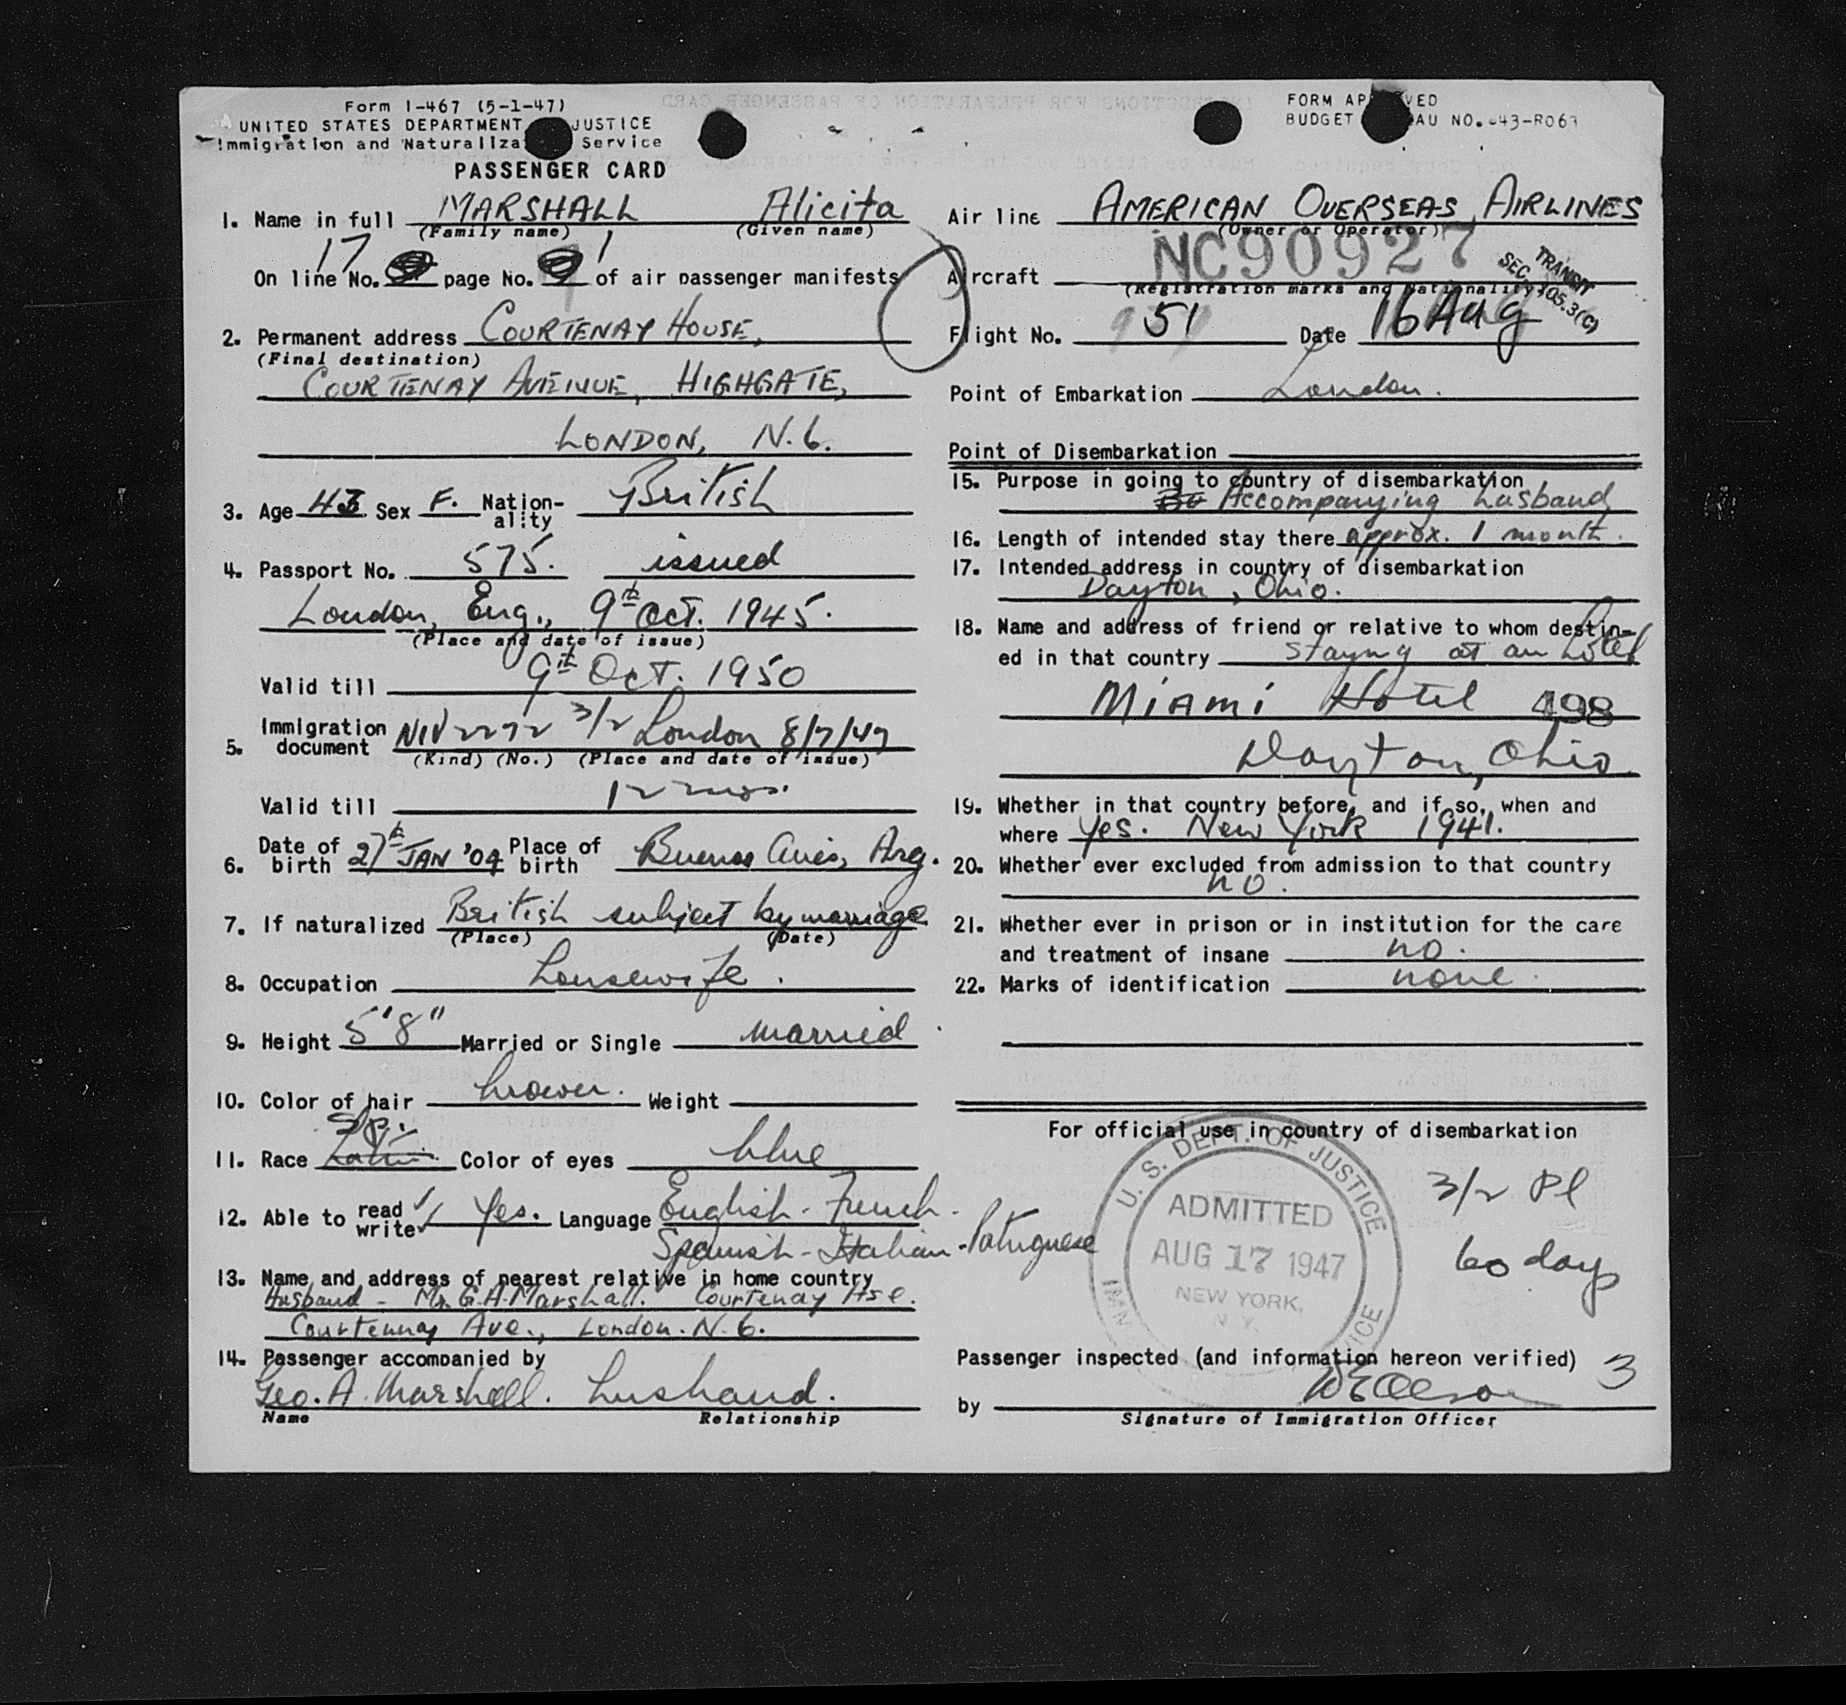 Form I-467 (5-1-47)
UNITED STATES DEPARTMENT JUSTICE
Immigration and Naturaliza Service
PASSENGER CARD
1. Name in full MARSHALL Alicita
(Family name) (Given name)
17 1
On line No. page No. of air passenger manifests
2. Permanent address COURTENAY HOUSE,
(Final destination)
COURTENAY AVENUE, HIGHGATE,
LONDON, N.6.
3. Age 43 Sex F. Nation-ality British
4. Passport No. 575. issued
London, Eng., 9th Oct. 1945.
(Place and date of issue)
Valid till 9th Oct. 1950
5. Immigration document NIV 2272 3/2 London 8/7/47
(Kind) (No.) (Place and date of issue)
Valid till 12 mos.
6. Date of birth 27th JAN '04 Place of birth Buenos Aires, Arg.
7. If naturalized British subject by marriage
(Place) (Date)
8. Occupation housewife.
9. Height 5'8" Married or Single married
10. Color of hair brown. Weight
Sp.
11. Race Latin Color of eyes blue
12. Able to read write Yes. Language English - French -
Spanish - Italian - Portuguese
13. Name and address of nearest relative in home country
Husband - Mr. G.A. Marshall. Courtenay Hse.
Courtenay Ave., London. N.6.
14. Passenger accompanied by
Geo. A. Marshall. husband.
Name Relationship
FORM AP VED
BUDGET AU NO. 43-R063
Air line AMERICAN OVERSEAS AIRLINES
(Owner or Operator)
Aircraft NC90927
(Registration marks and nationality)
TRANSIT
SEC. 105.3(C)
Flight No. 51 Date 16 Aug
Point of Embarkation London.
Point of Disembarkation
15. Purpose in going to country of disembarkation
Accompanying husband
16. Length of intended stay there approx. 1 month.
17. Intended address in country of disembarkation
Dayton, Ohio.
18. Name and address of friend or relative to whom destin-
ed in that country staying at an hotel
Miami Hotel 498
Dayton, Ohio.
19. Whether in that country before, and if so, when and
where Yes. New York 1941.
20. Whether ever excluded from admission to that country
no.
21. Whether ever in prison or in institution for the care
and treatment of insane no.
22. Marks of identification none.
For official use in country of disembarkation
U. S. DEPT. OF JUSTICE
ADMITTED
AUG 17 1947
NEW YORK,
N.Y.
3/2 Pl
60 days
Passenger inspected (and information hereon verified) 3
by
Signature of Immigration Officer